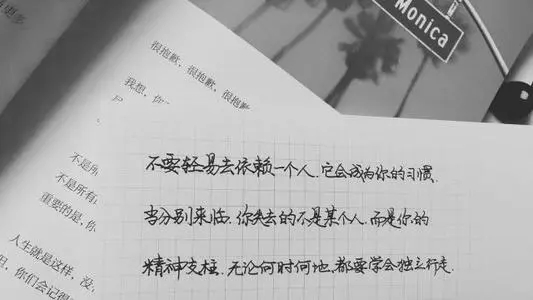 更多
Monica
很抱歉，很抱歉，很抱歉
我想，你
不是所
不是所有
重要的是，你
人生就是这样，没
但，你们会记得
不要轻易去依赖一个人.它会成为你的习惯.
当分别来临.你失去的不是某个人.而是你的
精神支柱.无论何时何地.都要学会独立行走.